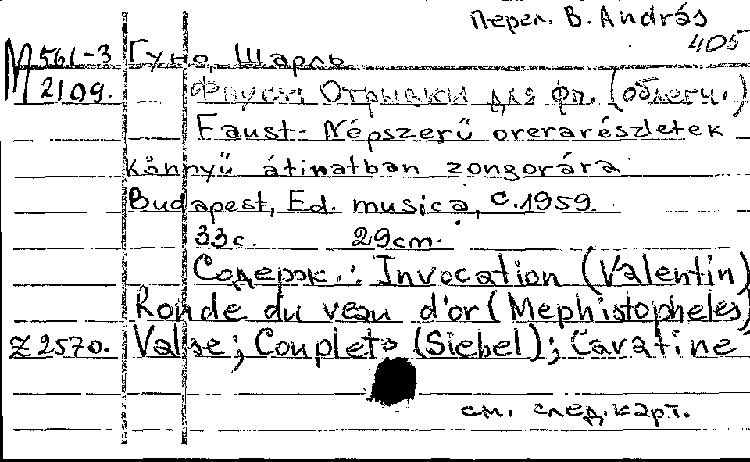 Перел. B. András
405
M 561-3 Гуно, Шарль
2109. Фауст: Отрывки для фп. (облегч.)
Faust- Népszerű orerarészletek
könnyű átiratban zongorára
Budapest, Ed. musica, c.1959.
33с. 29cm.
Содерж.: Invocation (Valentin)
Ronde du veau d'or (Mephistopheles)
Z 2570. Valse; Couplets (Siebel); Cavatine
см. след. карт.